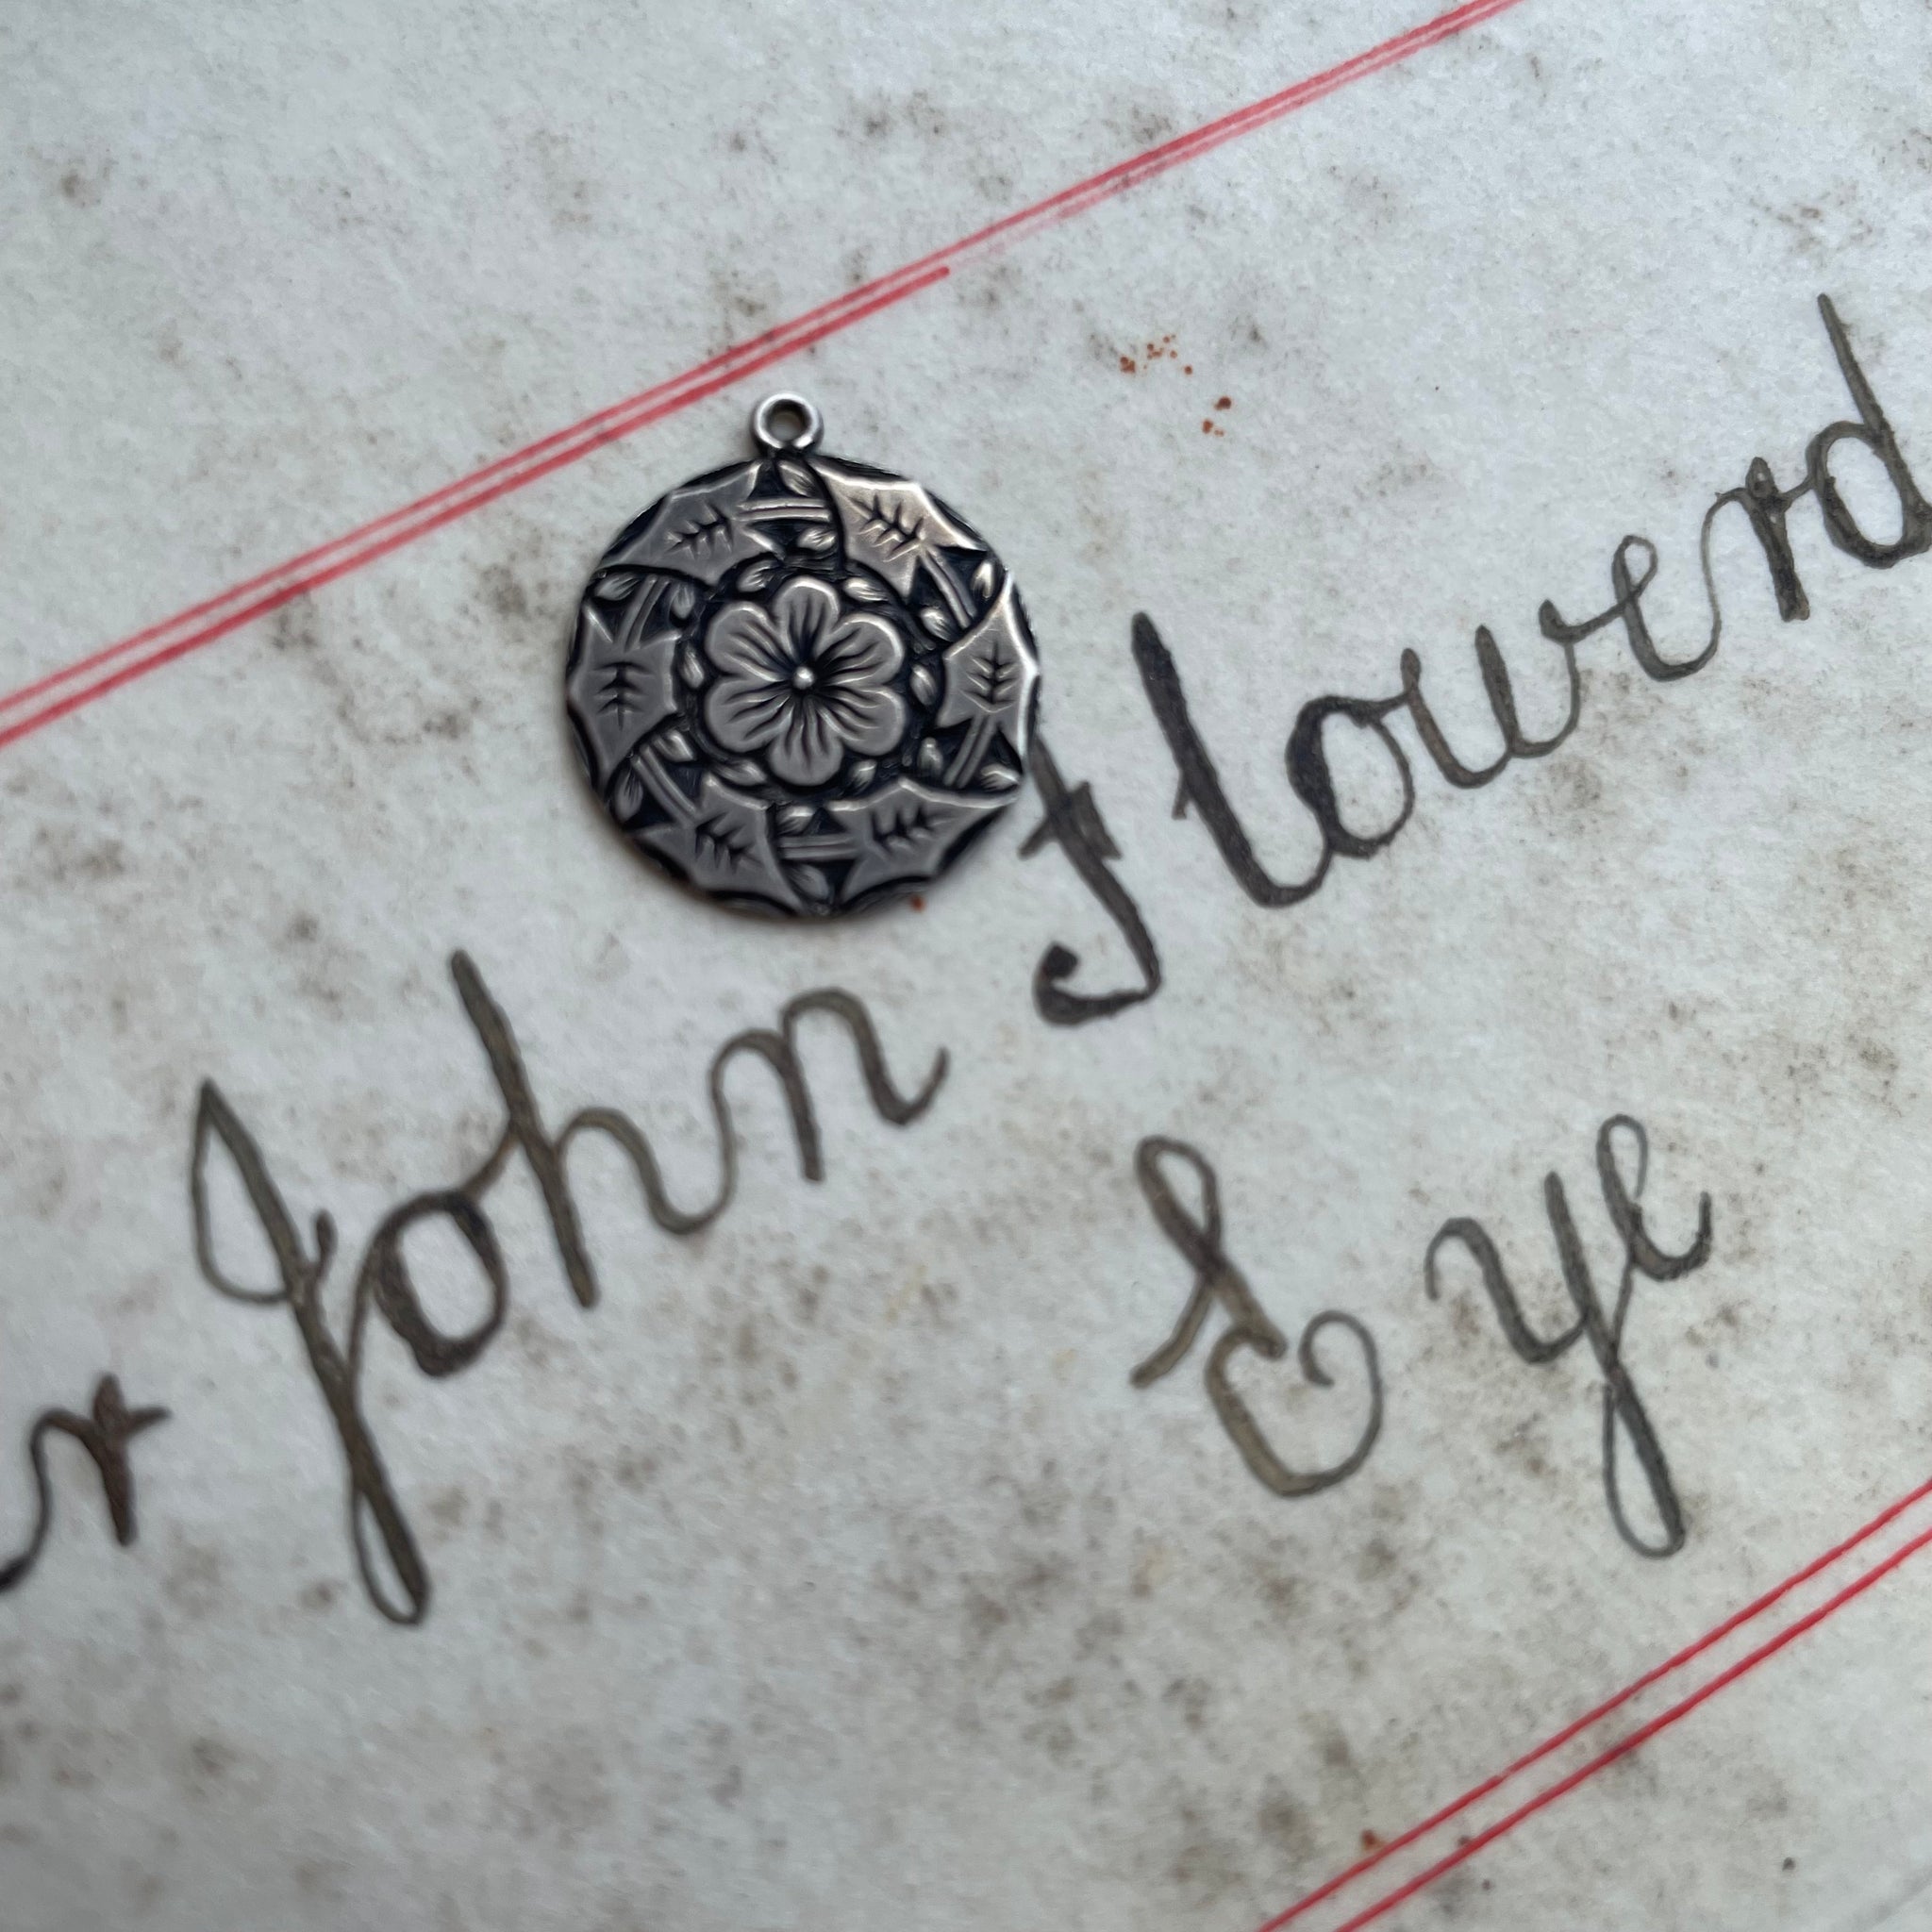 r John Flowerd
Eye